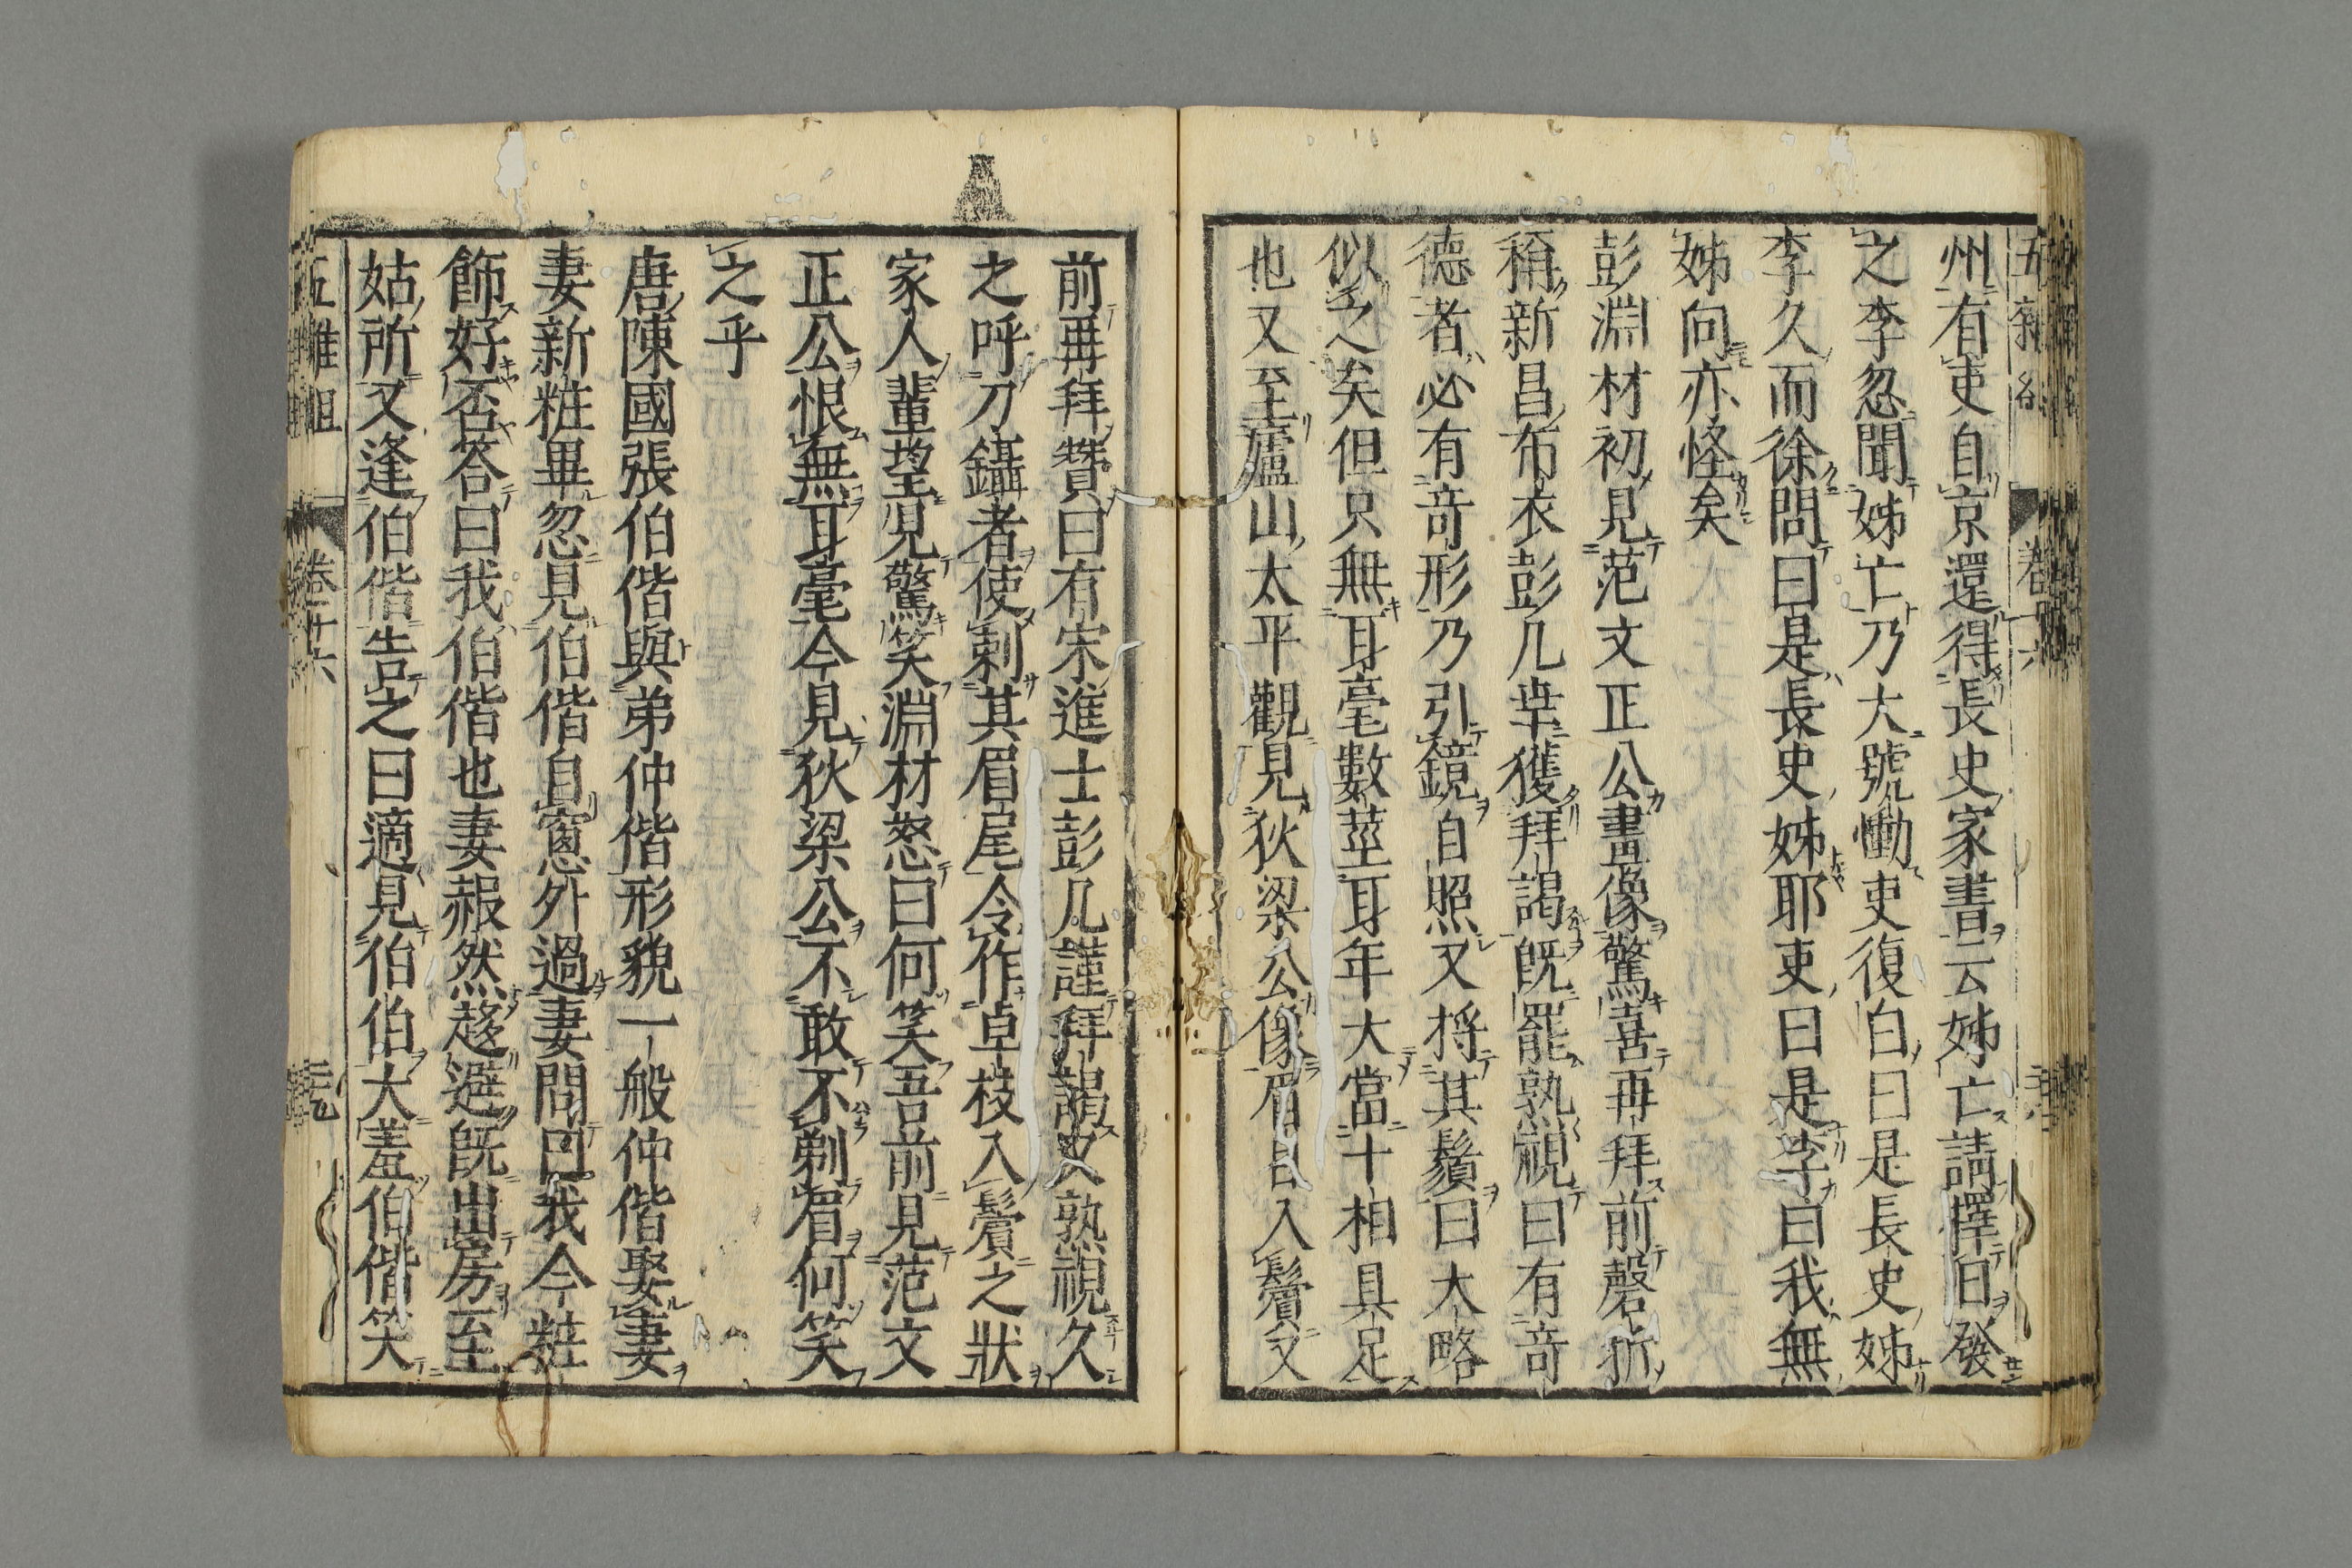 州有吏自京還得長史家書云姊亡請擇日發
之李忽聞姊亡乃大號慟吏復白曰是長史姊
李久而徐問曰是長史姊耶吏曰是李曰我無
姊向亦怪矣
彭淵材初見范文正公畫像驚喜再拜前磬折
稱新昌布衣彭几幸獲拜謁既罷熟視曰有奇
德者必有奇形乃引鏡自照又捋其鬚曰大略
似之矣但只無耳毫數莖耳年大當十相具足
也又至廬山太平觀見狄梁公像眉目入鬢又
前再拜贊曰有宋進士彭几謹拜謁又熟視久
之呼刀鑷者使剃其眉尾令作卓枝入鬢之狀
家人輩望見驚笑淵材怒曰何笑吾前見范文
正公恨無耳毫今見狄梁公不敢不剃眉何笑
之乎
唐陳國張伯偕與弟仲偕形貌一般仲偕娶妻
妻新粧畢忽見伯偕自窻外過妻問曰我今粧
飾好否答曰我伯偕也妻赧然趍避既出房至
姑所又逢伯偕告之曰適見伯伯大羞伯偕笑
五雜俎 卷十六